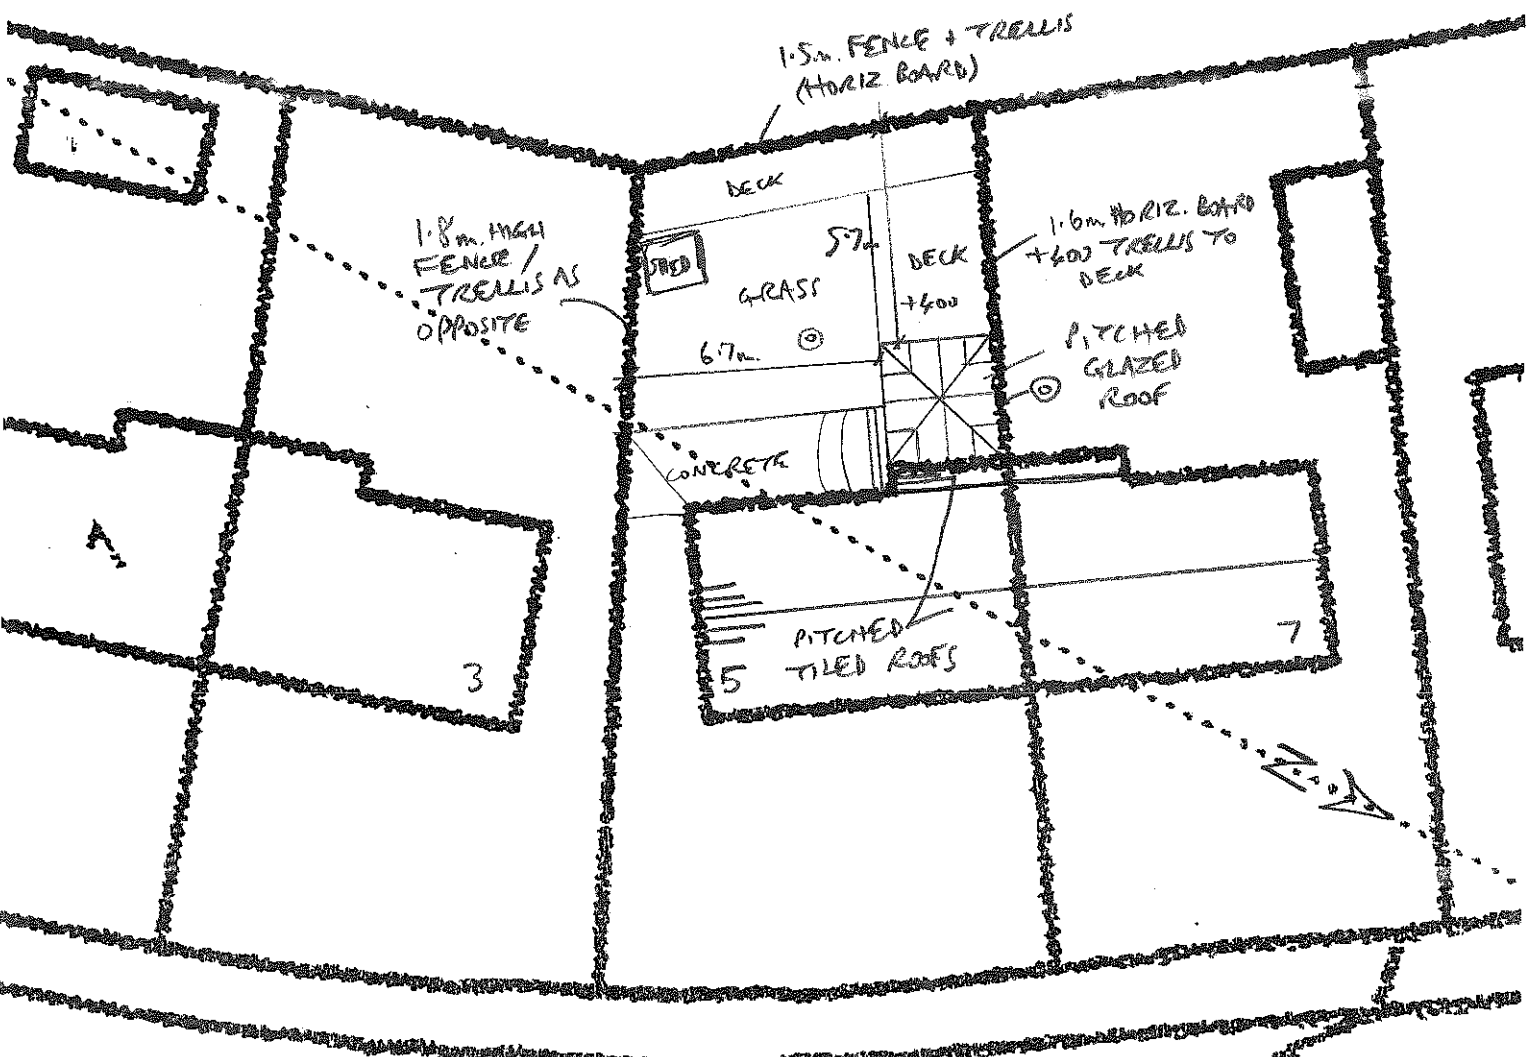 1.5m. FENCE + TRELLIS
(HORIZ BOARD)
DECK
1.8m. HIGH
FENCE /
TRELLIS AS
OPPOSITE
SHED
GRASS
5.7m
DECK
+400
1.6m HORIZ. BOARD
+400 TRELLIS TO
DECK
6.7m.
PITCHED
GLAZED
ROOF
CONCRETE
PITCHED
TILED ROOFS
3
5
7